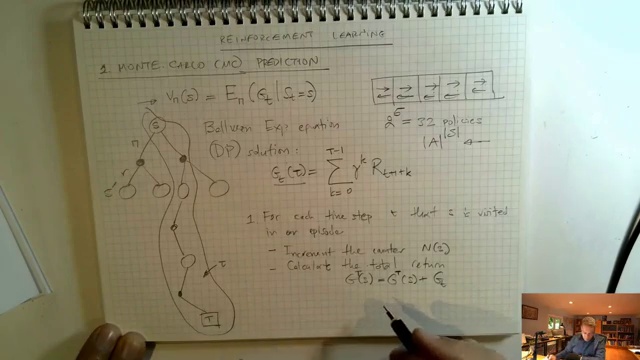 REINFORCEMENT LEARNING
1. MONTE-CARLO (MC) PREDICTION
→ Vπ(s) = Eπ(Gt | St = s)
2^5 = 32 policies
|A|^|S| ←
Bellman Exp. equation
(DP) solution:
Gt(τ) = Σ γ^k Rt+1+k
T-1
k=0
S
π
r
s'
τ
T
1 For each time step t that s is visited
in an episode
- Increment the counter N(s)
- Calculate the total return
G^T(s) = G^T(s) + Gt